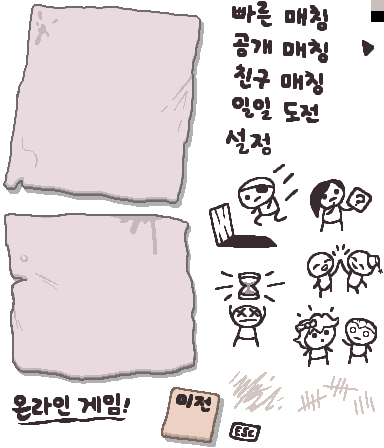 빠른 매칭
공개 매칭
친구 매칭
일일 도전
설정
?
온라인 게임!
이전
ESC